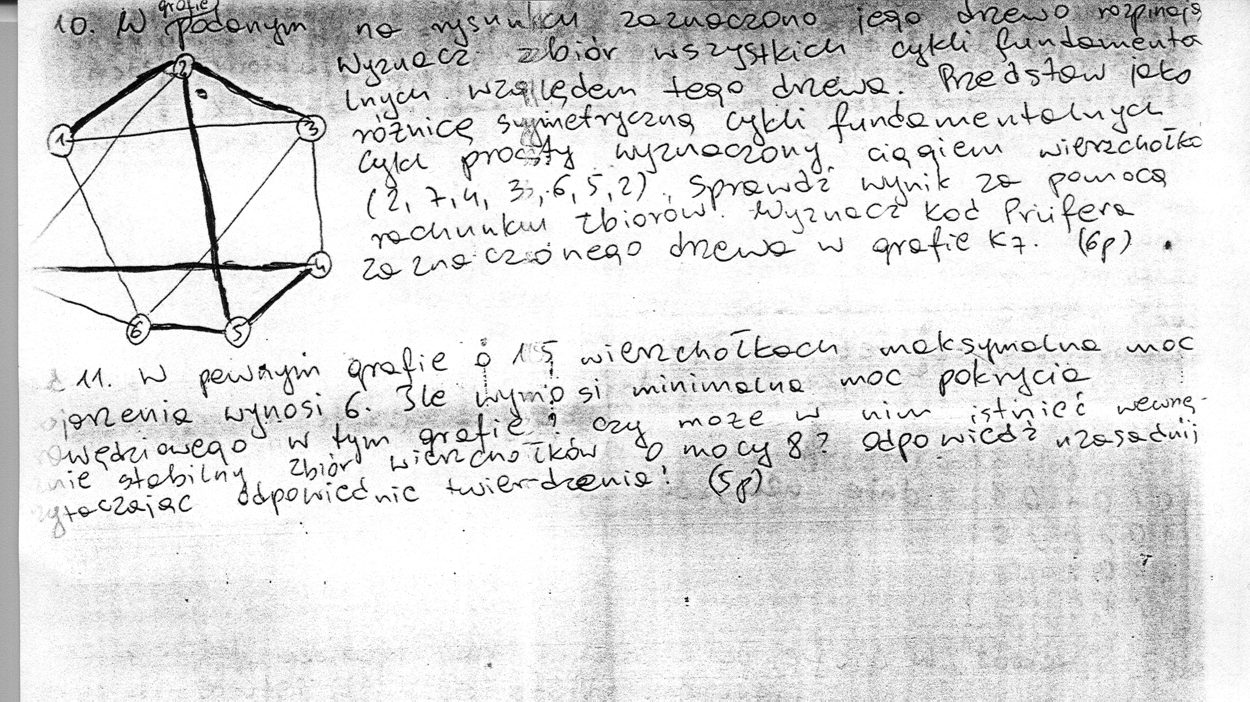 grafie
10. W podanym na rysunku zaznaczono jego drzewo rozpinają
Wyznacz zbiór wszystkich cykli fundamenta
lnych względem tego drzewa. Przedstaw jako
różnicę symetryczną cykli fundamentalnych
cykl prosty wyznaczony ciągiem wierzchołkó
(2, 7, 4, 3, 6, 5, 2). Sprawdź wynik za pomocą
rachunku zbiorów. Wyznacz kod Prüfera
zaznaczonego drzewa w grafie K7. (6p)
2
1
3
4
6
5
11. W pewnym grafie o 15 wierzchołkach maksymalna moc
jarzenia wynosi 6. Ile wynosi minimalna moc pokrycia
awędziowego w tym grafie? Czy może w nim istnieć wewnę-
nie stabilny zbiór wierzchołków o mocy 8? Odpowiedź uzasadnij
ytaczając odpowiednie twierdzenia! (5p)